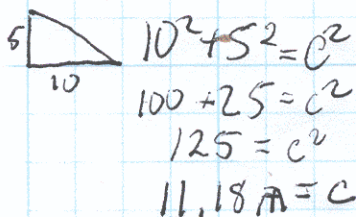 5
10
10² + 5² = c²
100 + 25 = c²
125 = c²
11,18 m = c